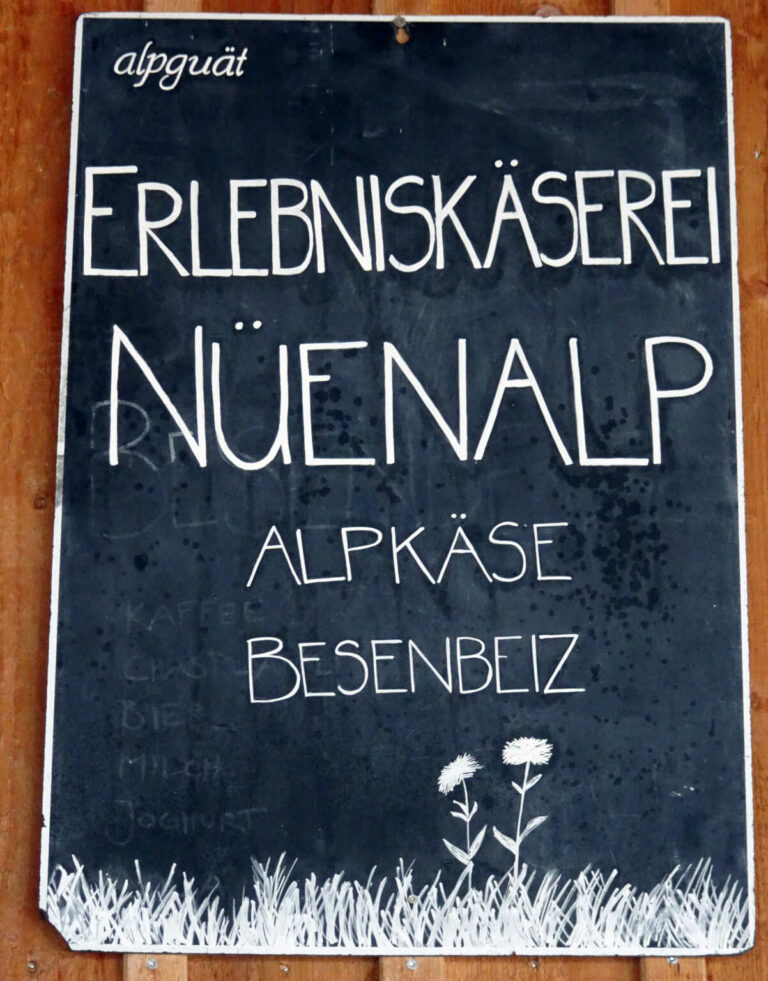 alpguät
ERLEBNISKÄSEREI
NÜENALP
ALPKÄSE
BESENBEIZ
KAFFEE
BIER
MILCH
JOGHURT